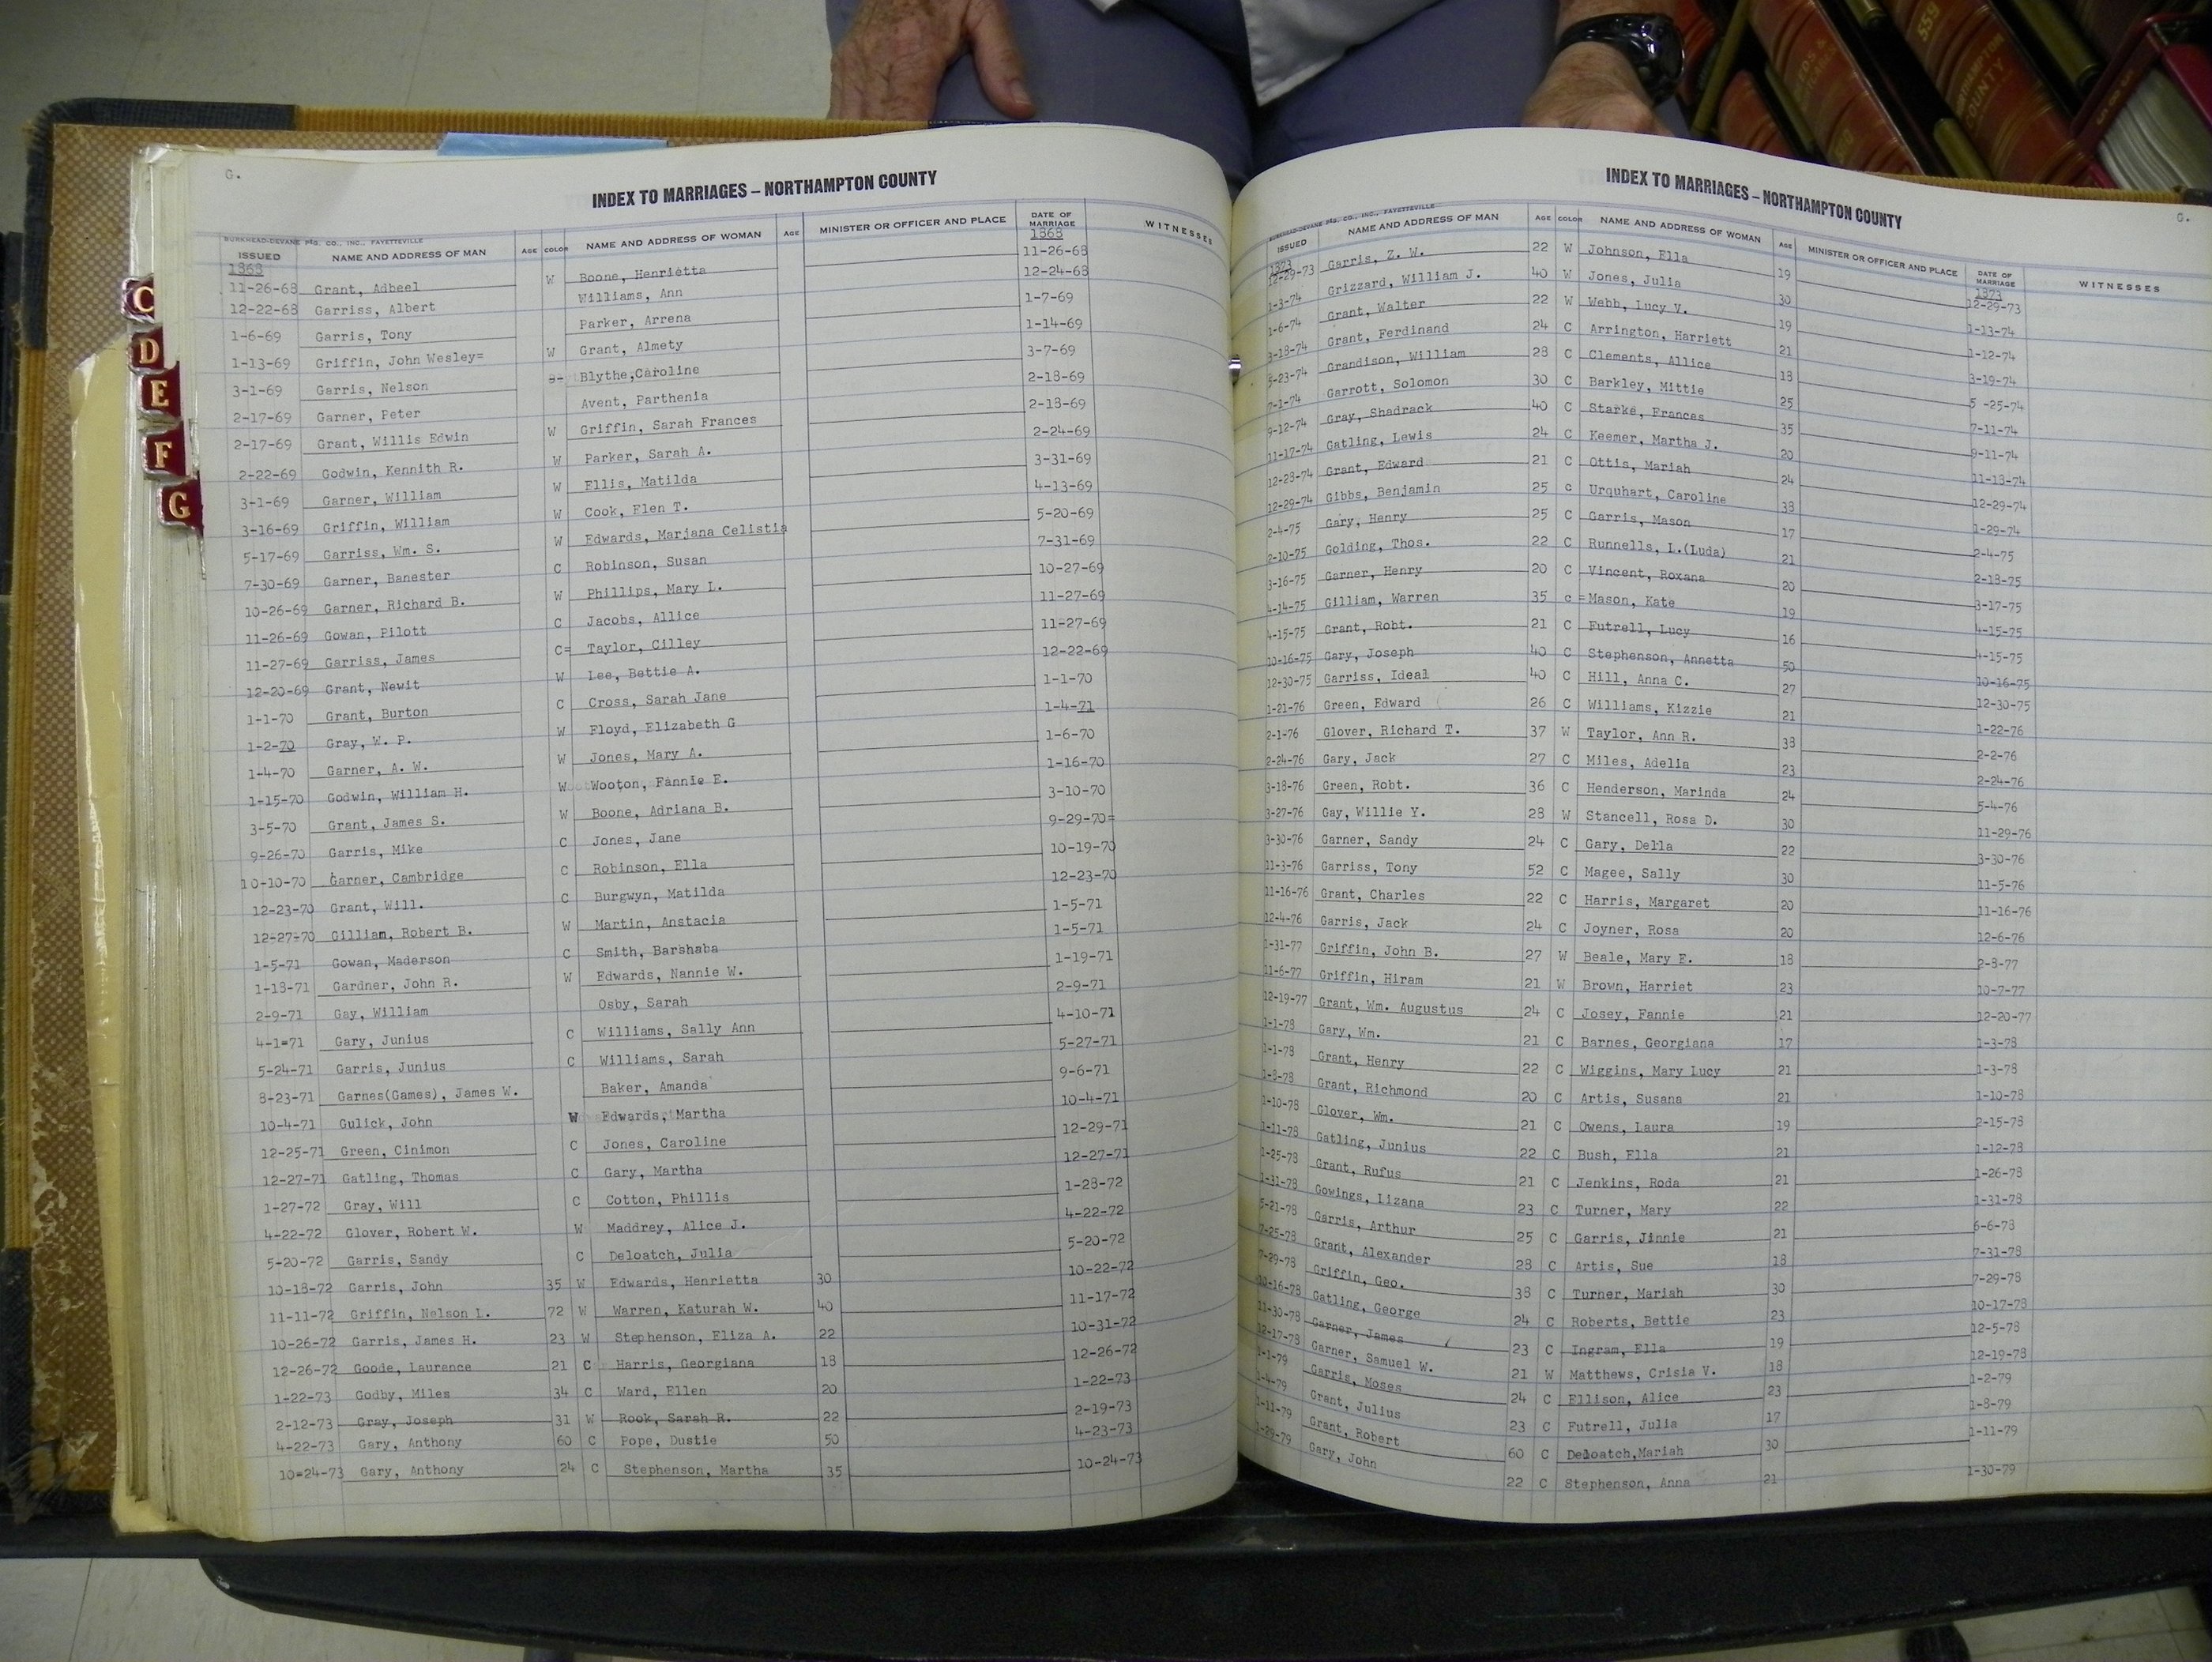 C
D
E
F
G
559
NORTHAMPTON COUNTY
G.
INDEX TO MARRIAGES – NORTHAMPTON COUNTY
BURKHEAD-DEVANE PTG. CO., INC., FAYETTEVILLE
ISSUED NAME AND ADDRESS OF MAN AGE COLOR NAME AND ADDRESS OF WOMAN AGE MINISTER OR OFFICER AND PLACE DATE OF MARRIAGE WITNESSES
1868 1868
11-26-68 Grant, Adbeel W Boone, Henrietta 11-26-68
12-22-68 Garriss, Albert Williams, Ann 12-24-68
1-6-69 Garris, Tony Parker, Arrena 1-7-69
1-13-69 Griffin, John Wesley= W Grant, Almety 1-14-69
3-1-69 Garris, Nelson Blythe,Caroline 3-7-69
2-17-69 Garner, Peter Avent, Parthenia 2-18-69
2-17-69 Grant, Willis Edwin W Griffin, Sarah Frances 2-18-69
2-22-69 Godwin, Kennith R. W Parker, Sarah A. 2-24-69
3-1-69 Garner, William W Ellis, Matilda 3-31-69
3-16-69 Griffin, William W Cook, Elen T. 4-13-69
5-17-69 Garriss, Wm. S. W Edwards, Marjana Celistia 5-20-69
7-30-69 Garner, Banester C Robinson, Susan 7-31-69
10-26-69 Garner, Richard B. W Phillips, Mary L. 10-27-69
11-26-69 Gowan, Pilott C Jacobs, Allice 11-27-69
11-27-69 Garriss, James C= Taylor, Cilley 11-27-69
12-20-69 Grant, Newit W Lee, Bettie A. 12-22-69
1-1-70 Grant, Burton C Cross, Sarah Jane 1-1-70
1-2-70 Gray, W. P. W Floyd, Elizabeth G 1-4-71
1-4-70 Garner, A. W. W Jones, Mary A. 1-6-70
1-15-70 Godwin, William H. W Wooton, Fannie E. 1-16-70
3-5-70 Grant, James S. W Boone, Adriana B. 3-10-70
9-26-70 Garris, Mike C Jones, Jane 9-29-70=
10-10-70 Garner, Cambridge C Robinson, Ella 10-19-70
12-23-70 Grant, Will. C Burgwyn, Matilda 12-23-70
12-27-70 Gilliam, Robert B. W Martin, Anstacia 1-5-71
1-5-71 Gowan, Maderson C Smith, Barshaba 1-5-71
1-18-71 Gardner, John R. W Edwards, Nannie W. 1-19-71
2-9-71 Gay, William Osby, Sarah 2-9-71
4-1=71 Gary, Junius C Williams, Sally Ann 4-10-71
5-24-71 Garris, Junius C Williams, Sarah 5-27-71
8-23-71 Garnes(Games), James W. Baker, Amanda 9-6-71
10-4-71 Gulick, John W Edwards, Martha 10-4-71
12-25-71 Green, Cinimon C Jones, Caroline 12-29-71
12-27-71 Gatling, Thomas C Gary, Martha 12-27-71
1-27-72 Gray, Will C Cotton, Phillis 1-28-72
4-22-72 Glover, Robert W. W Maddrey, Alice J. 4-22-72
5-20-72 Garris, Sandy C Deloatch, Julia 5-20-72
10-18-72 Garris, John 35 W Edwards, Henrietta 30 10-22-72
11-11-72 Griffin, Nelson L. 72 W Warren, Katurah W. 40 11-17-72
10-26-72 Garris, James H. 23 W Stephenson, Eliza A. 22 10-31-72
12-26-72 Goode, Laurence 21 C Harris, Georgiana 18 12-26-72
1-22-73 Godby, Miles 34 C Ward, Ellen 20 1-22-73
2-12-73 Gray, Joseph 31 W Rook, Sarah R. 22 2-19-73
4-22-73 Gary, Anthony 60 C Pope, Dustie 50 4-23-73
10=24-73 Gary, Anthony 24 C Stephenson, Martha 35 10-24-73
G.
INDEX TO MARRIAGES – NORTHAMPTON COUNTY
BURKHEAD-DEVANE PTG. CO., INC., FAYETTEVILLE
ISSUED NAME AND ADDRESS OF MAN AGE COLOR NAME AND ADDRESS OF WOMAN AGE MINISTER OR OFFICER AND PLACE DATE OF MARRIAGE WITNESSES
1873 1873
12-29-73 Garris, Z. W. 22 W Johnson, Ella 19 12-29-73
1-3-74 Grizzard, William J. 40 W Jones, Julia 30 1-13-74
1-6-74 Grant, Walter 22 W Webb, Lucy V. 19 1-12-74
3-18-74 Grant, Ferdinand 24 C Arrington, Harriett 21 3-19-74
5-23-74 Grandison, William 28 C Clements, Allice 18 5 -25-74
7-1-74 Garrott, Solomon 30 C Barkley, Mittie 25 7-11-74
9-12-74 Gray, Shadrack 40 C Starke, Frances 35 9-11-74
11-17-74 Gatling, Lewis 24 C Keemer, Martha J. 20 11-18-74
12-28-74 Grant, Edward 21 C Ottis, Mariah 24 12-29-74
12-29-74 Gibbs, Benjamin 25 c Urquhart, Caroline 38 1-29-74
2-4-75 Gary, Henry 25 C Garris, Mason 17 2-4-75
2-10-75 Golding, Thos. 22 C Runnells, L.(Luda) 21 2-18-75
3-16-75 Garner, Henry 20 C Vincent, Roxana 20 3-17-75
4-14-75 Gilliam, Warren 35 c = Mason, Kate 19 4-15-75
4-15-75 Grant, Robt. 21 C Futrell, Lucy 16 4-15-75
10-16-75 Gary, Joseph 40 C Stephenson, Annetta 50 10-16-75
12-30-75 Garriss, Ideal 40 C Hill, Anna C. 27 12-30-75
1-21-76 Green, Edward 26 C Williams, Kizzie 21 1-22-76
2-1-76 Glover, Richard T. 37 W Taylor, Ann R. 38 2-2-76
2-24-76 Gary, Jack 27 C Miles, Adelia 23 2-24-76
3-18-76 Green, Robt. 36 C Henderson, Marinda 24 5-4-76
3-27-76 Gay, Willie Y. 28 W Stancell, Rosa D. 30 11-29-76
3-30-76 Garner, Sandy 24 C Gary, Della 22 3-30-76
11-3-76 Garriss, Tony 52 C Magee, Sally 30 11-5-76
11-16-76 Grant, Charles 22 C Harris, Margaret 20 11-16-76
12-4-76 Garris, Jack 24 C Joyner, Rosa 20 12-6-76
1-31-77 Griffin, John B. 27 W Beale, Mary E. 18 2-8-77
11-6-77 Griffin, Hiram 21 W Brown, Harriet 23 10-7-77
12-19-77 Grant, Wm. Augustus 24 C Josey, Fannie 21 12-20-77
1-1-78 Gary, Wm. 21 C Barnes, Georgiana 17 1-3-78
1-1-78 Grant, Henry 22 C Wiggins, Mary Lucy 21 1-3-78
1-8-78 Grant, Richmond 20 C Artis, Susana 21 1-10-78
1-10-78 Glover, Wm. 21 C Owens, Laura 19 2-15-78
1-11-78 Gatling, Junius 22 C Bush, Ella 21 1-12-78
1-25-78 Grant, Rufus 21 C Jenkins, Roda 21 1-26-78
1-31-78 Gowings, Lizana 23 C Turner, Mary 22 1-31-78
5-21-78 Garris, Arthur 25 C Garris, Jinnie 21 6-6-78
7-25-78 Grant, Alexander 28 C Artis, Sue 18 7-31-78
7-29-78 Griffin, Geo. 38 C Turner, Mariah 30 7-29-78
10-16-78 Gatling, George 24 C Roberts, Bettie 23 10-17-78
11-30-78 Garner, James 23 C Ingram, Ella 19 12-5-78
12-17-78 Garner, Samuel W. 21 W Matthews, Crisia V. 18 12-19-78
1-1-79 Garris, Moses 24 C Ellison, Alice 23 1-2-79
1-4-79 Grant, Julius 23 C Futrell, Julia 17 1-8-79
1-11-79 Grant, Robert 60 C Deloatch,Mariah 30 1-11-79
1-29-79 Gary, John 22 C Stephenson, Anna 21 1-30-79